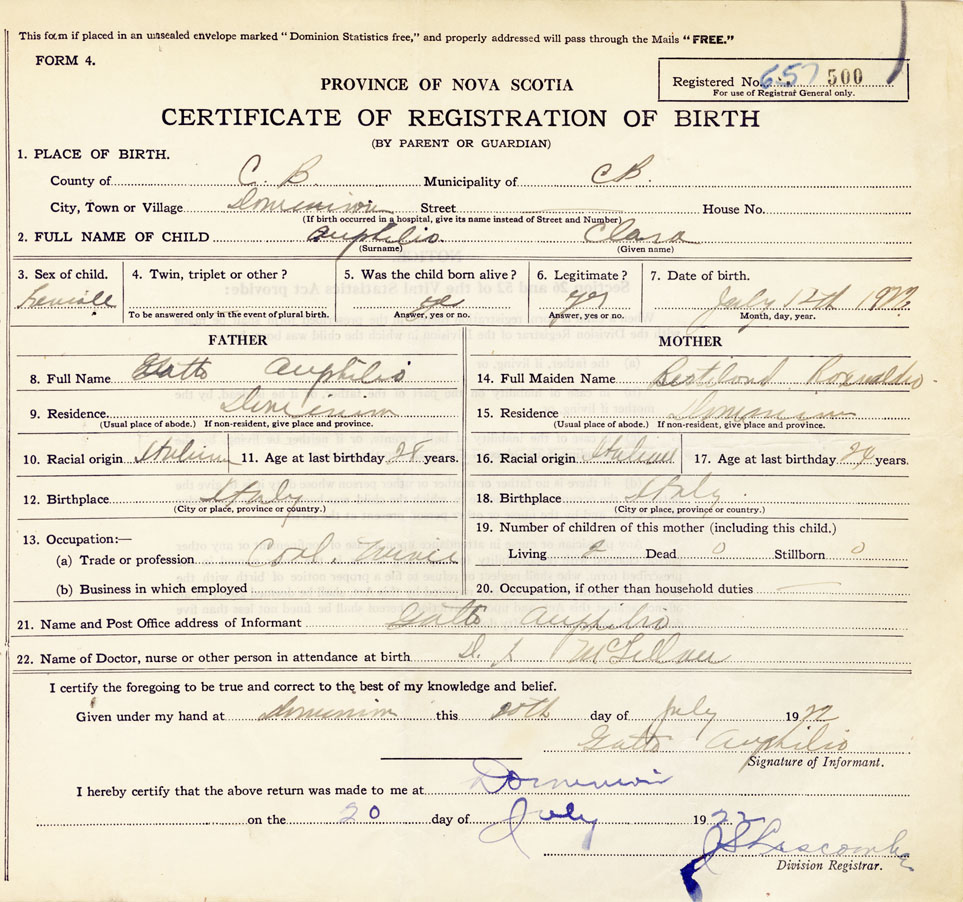 This form if placed in an unsealed envelope marked "Dominion Statistics free," and properly addressed will pass through the Mails "FREE."
FORM 4.
PROVINCE OF NOVA SCOTIA
Registered No. 657 500
For use of Registrar General only.
CERTIFICATE OF REGISTRATION OF BIRTH
(BY PARENT OR GUARDIAN)
1. PLACE OF BIRTH.
County of C. B. Municipality of CB.
City, Town or Village Dominion Street House No.
(If birth occurred in a hospital, give its name instead of Street and Number)
2. FULL NAME OF CHILD Auphilio Clara
(Surname) (Given name)
3. Sex of child. 4. Twin, triplet or other? 5. Was the child born alive? 6. Legitimate? 7. Date of birth.
Female yes yes July 12th 1922
To be answered only in the event of plural birth. Answer, yes or no. Answer, yes or no. Month, day, year.
FATHER MOTHER
8. Full Name Gatto Auphilio 14. Full Maiden Name
9. Residence. Dominion 15. Residence Dominion
(Usual place of abode.) If non-resident, give place and province. (Usual place of abode.) If non-resident, give place and province.
10. Racial origin Italian 11. Age at last birthday 28 years. 16. Racial origin Italian 17. Age at last birthday years.
12. Birthplace Italy 18. Birthplace Italy
(City or place, province or country.) (City or place, province or country.)
13. Occupation:— 19. Number of children of this mother (including this child.)
(a) Trade or profession Coal Miner Living 2 Dead 0 Stillborn 0
(b) Business in which employed 20. Occupation, if other than household duties
21. Name and Post Office address of Informant Gatto Auphilio
22. Name of Doctor, nurse or other person in attendance at birth
I certify the foregoing to be true and correct to the best of my knowledge and belief.
Given under my hand at Dominion this 20th day of July 1922
Gatto Auphilio
Signature of Informant.
I hereby certify that the above return was made to me at Dominion
on the 20 day of July 1922
Division Registrar.